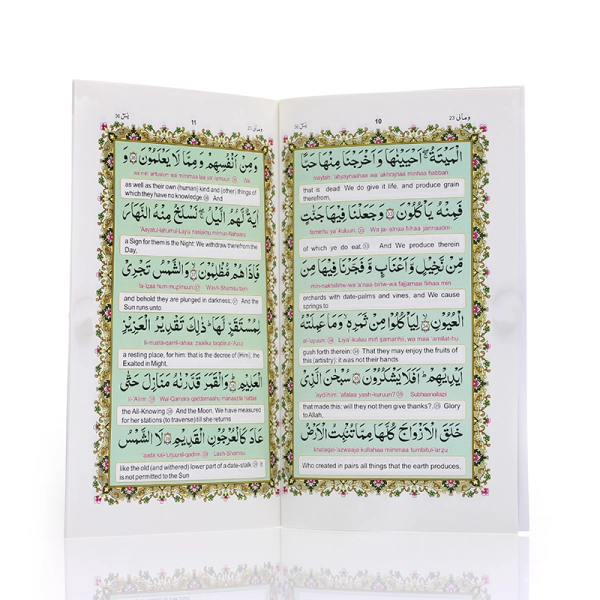 ومالى 23
10
يٰسٓ 36
الْمَيْتَةُ ۖ اَحْيَيْنٰهَا وَاَخْرَجْنَا مِنْهَا حَبًّا
maytah: 'ahyaynaahaa wa 'akhrajnaa minhaa habban
that is dead: We do give it life, and produce grain
therefrom,
فَمِنْهُ يَاْكُلُوْنَ ﴿٣٣﴾ وَجَعَلْنَا فِيْهَا جَنّٰتٍ
famiñhu ya'kuluun. Wa ja-'alnaa fiihaa jannaatim-
of which ye do eat. 33 And We produce therein
مِّنْ نَّخِيْلٍ وَّاَعْنَابٍ وَّفَجَّرْنَا فِيْهَا مِنَ
min-nakhiiliñw-wa 'a'naa-biñw-wa fajjarnaa fiihaa min
orchards with date-palms and vines, and We cause
springs to
الْعُيُوْنِ ﴿٣٤﴾ لِيَاْكُلُوْا مِنْ ثَمَرِهٖ ۙ وَمَا عَمِلَتْهُ
al-'uyuun. Liya'kuluu miñ ṡamarihii, wa maa 'amilat-hu
gush forth therein: 34 That they may enjoy the fruits of
this (artistry): it was not their hands
اَيْدِيْهِمْ ؕ اَفَلَا يَشْكُرُوْنَ ﴿٣٥﴾ سُبْحٰنَ الَّذِيْ
'aydiihim: 'afalaa yash-kuruun? Subhaanallazii
that made this: will they not then give thanks? 35 Glory
to Allah,
خَلَقَ الْاَزْوَاجَ كُلَّهَا مِمَّا تُنْۢبِتُ الْاَرْضُ
khalaqal-'azwaaja kullahaa mimmaa tumbitul-'arzu
Who created in pairs all things that the earth produces,
ومالى 23
11
يٰسٓ 36
وَمِنْ اَنْفُسِهِمْ وَمِمَّا لَا يَعْلَمُوْنَ ﴿٣٦﴾ وَ
wa min 'anfusihim wa mimmaa laa ya'-lamuun. Wa
as well as their own (human) kind and (other) things of
which they have no knowledge. 36 And
اٰيَةٌ لَّهُمُ الَّيْلُ ۖۚ نَسْلَخُ مِنْهُ النَّهَارَ
'Aayatul-lahumul-Laylu naslakhu minhun-Nahaara
a Sign for them is the Night: We withdraw therefrom the
Day,
فَاِذَا هُمْ مُّظْلِمُوْنَ ﴿٣٧﴾ وَالشَّمْسُ تَجْرِيْ
fa-'izaa hum muzlimuun; Wash-Shamsu tajrii
and behold they are plunged in darkness; 37 And the
Sun runs unto
لِمُسْتَقَرٍّ لَّهَا ؕ ذٰلِكَ تَقْدِيْرُ الْعَزِيْزِ
li-mustaqarril-lahaa: zaalika taqdiirul-'Aziiz
a resting place, for him: that is the decree of (Him), the
Exalted in Might.
الْعَلِيْمِ ﴿٣٨﴾ وَالْقَمَرَ قَدَّرْنٰهُ مَنَازِلَ حَتّٰى
il-'Aliim. Wal-Qamara qaddarnaahu manaazila hattaa
the All-Knowing. 38 And the Moon, We have measured
for her stations (to traverse) till she returns
عَادَ كَالْعُرْجُوْنِ الْقَدِيْمِ ﴿٣٩﴾ لَا الشَّمْسُ
'aada kal-'urjuunil-qadiim. Lash-Shamsu
like the old (and withered) lower part of a date-stalk. 39 It
is not permitted to the Sun